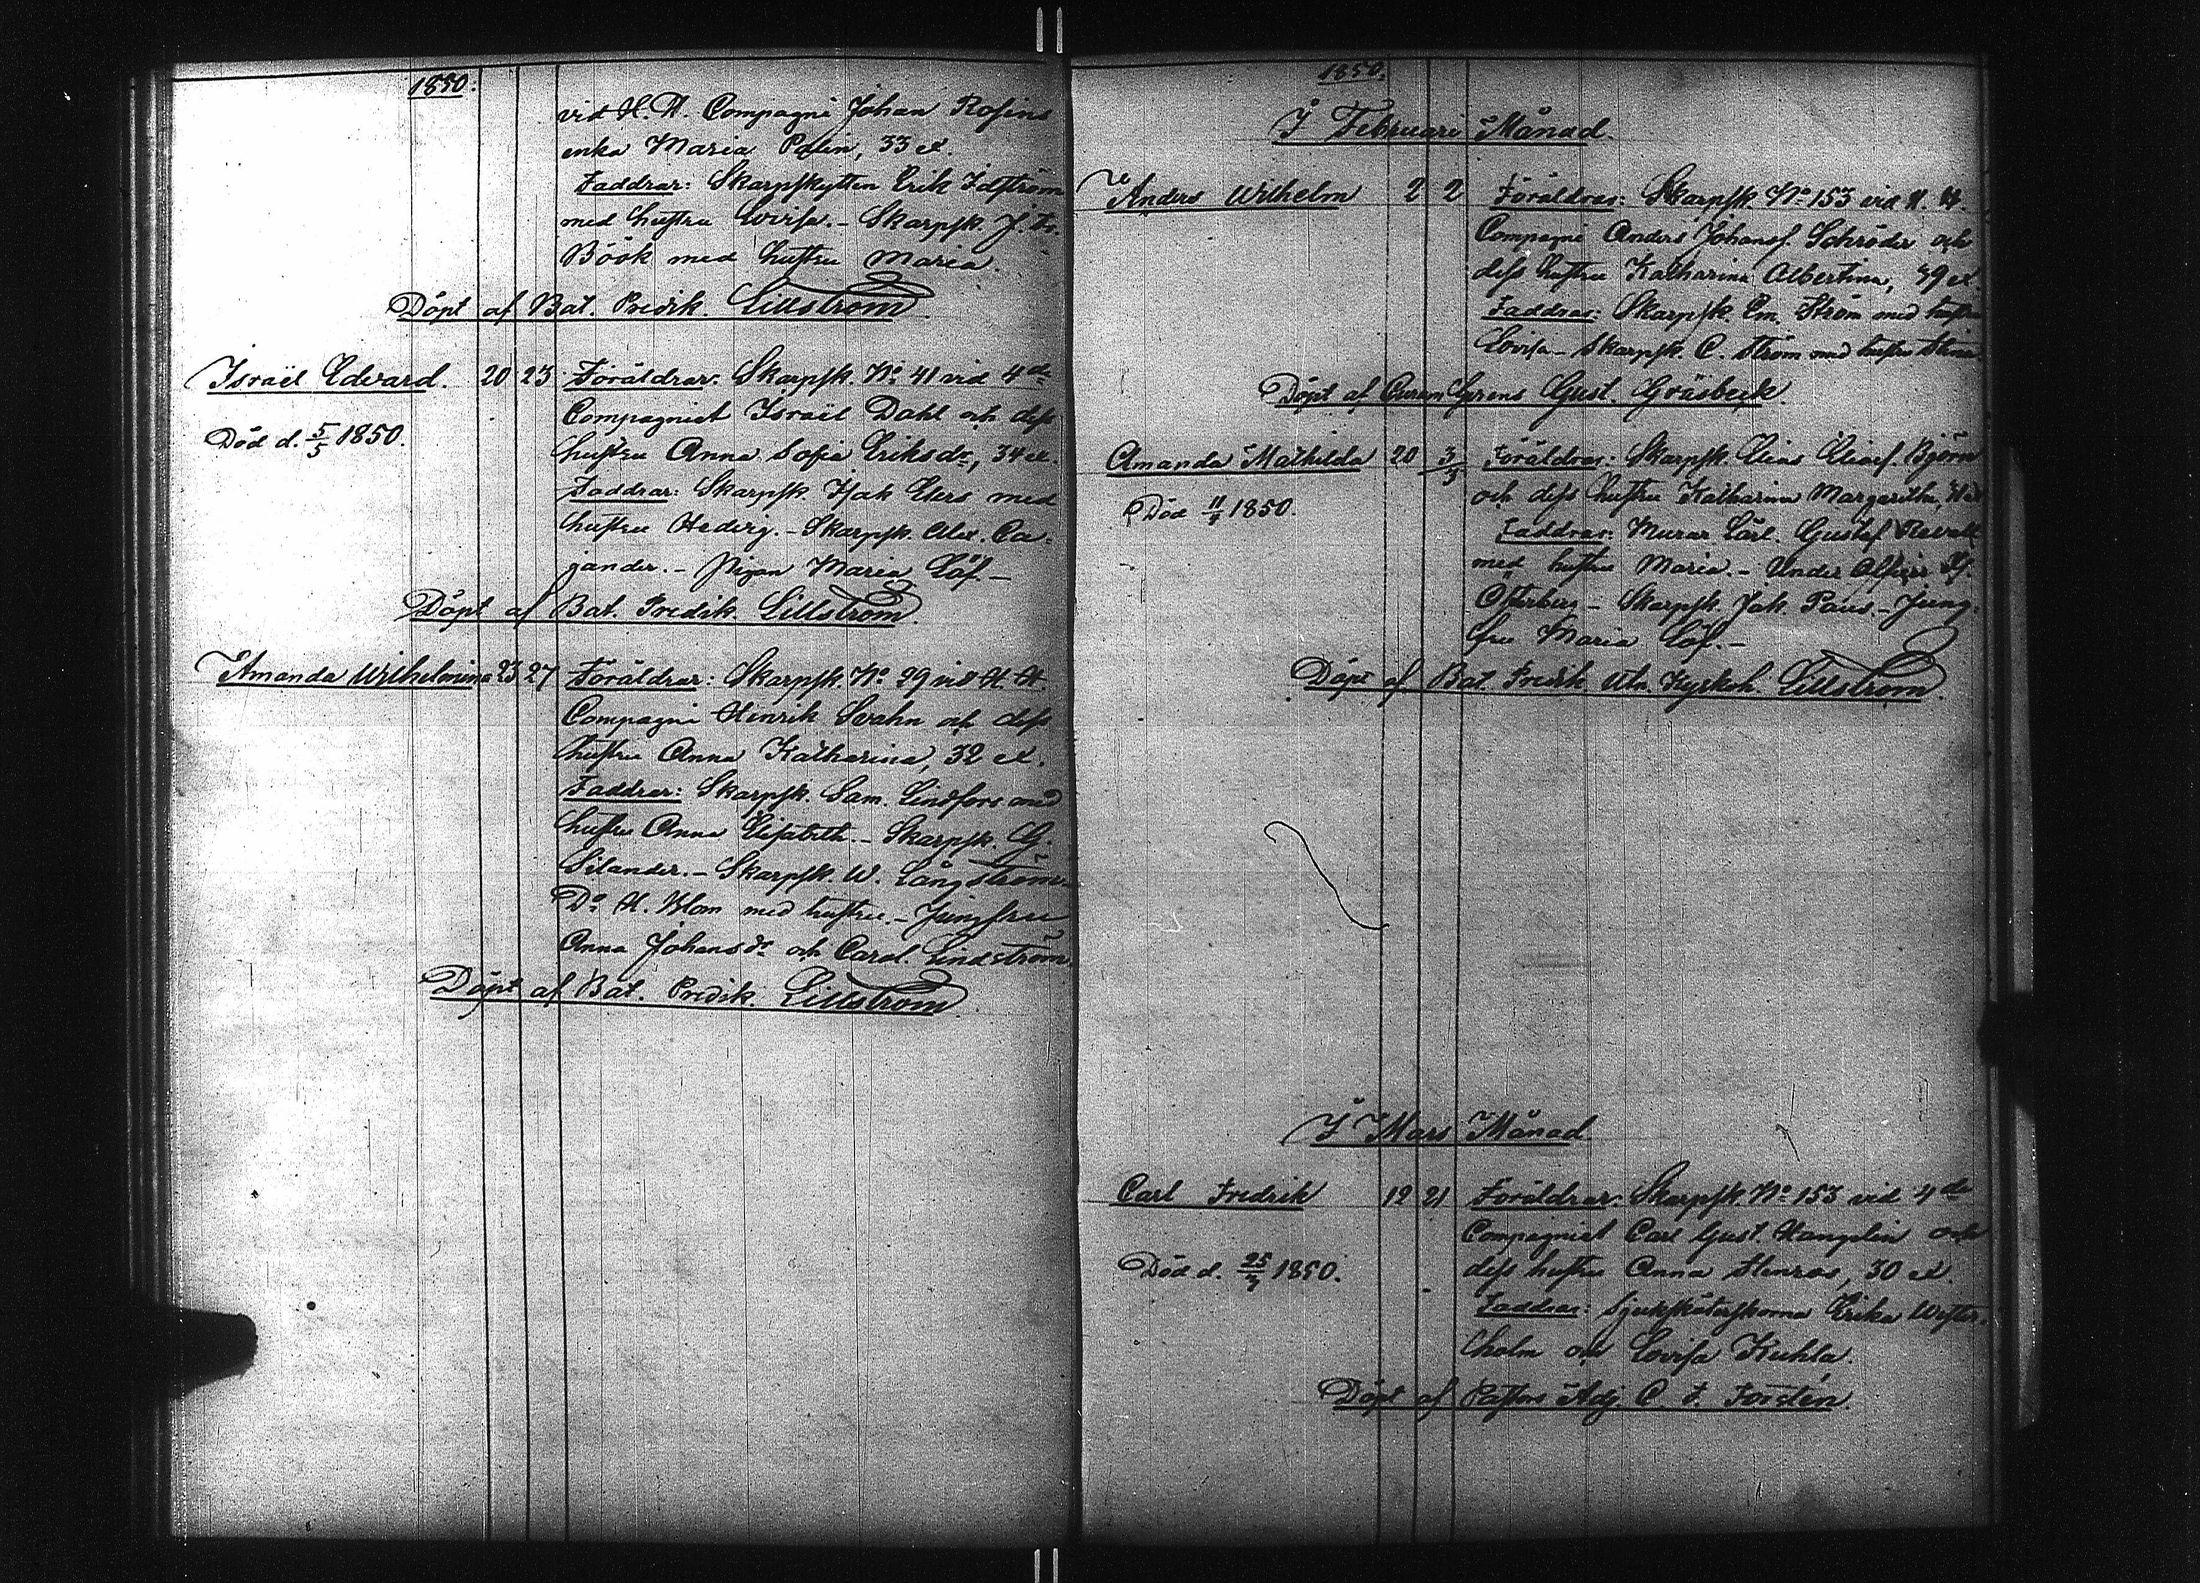 1850.
vid H. H. Compagni Johan Rosins
enka Maria Polin, 33 et.
Faddrar: Skarpskytten Erik Idström
med hustru Lovisa. - Skarpsk. J. Fr.
Böök med hustru Maria.
Döpt af Bat. Predik. Lillström
Israël Edvard. 20 23 Föräldrar: Skarpsk. No 41 vid 4de
Compagniet Israël Dahl och dess
Död d. 5/5 1850.
hustru Anna Sofia Eriksdr, 34 et.
Faddrar: Skarpsk. Isak Elers med
hustru Hedvig. - Skarpsk. Alex. Ca-
jander. - Pigan Maria Löf. -
Döpt af Bat. Predik. Lillström.
Amanda Wilhelmina 23 27 Föräldrar: Skarpsk. No 29 vid H. H.
Compagni Hinrik Svahn och dess
hustru Anna Katharina, 32 et.
Faddrar: Skarpsk. Sam. Lindfors med
hustru Anna Elisabeth. - Skarpsk. G.
Silander. - Skarpsk. W. Långström -
Do H. Blom med hustru. - Jungfru
Anna Johansdr och Carol. Lindström.
Döpt af Bat. Predik. Lillström
1850.
I Februari Månad.
Anders Wilhelm 2 2 Föräldrar: Skarpsk. No 153 vid H. H.
Compagni Anders Johansf. Schröder och
dess hustru Katharina Albertina, 29 et.
Faddrar: Skarpsk. Em. Ström med hustru
Lovisa - Skarpsk. C. Ström med hustru Stina
Döpt af Gust. Gräsbeck.
Amanda Mathilda 20 3/3 Föräldrar: Skarpsk. Elias Eliasf. Björn
och dess hustru Katharina Margaretha,
Död 1850.
Faddrar: Murar Lärl. Gustaf
med hustru Maria. - Under Officer
Österberg - Skarpsk. Jak. Paus - Jung-
fru Maria Löf. -
Döpt af Bat. Predik. Uth. Kyrkoh. Lillström.
I Mars Månad.
Carl Fredrik 19 21 Föräldrar: Skarpsk. No 153 vid 4de
Compagniet Carl Gust. Hamplin och
dess hustru Anna Henras, 30 et
Död d. 25/7 1850.
Faddrar: Sjuksköterskorna Erika Wester-
holm och Lovisa Kuhla.
Döpt af Pastors Adj. C. F. Forstén